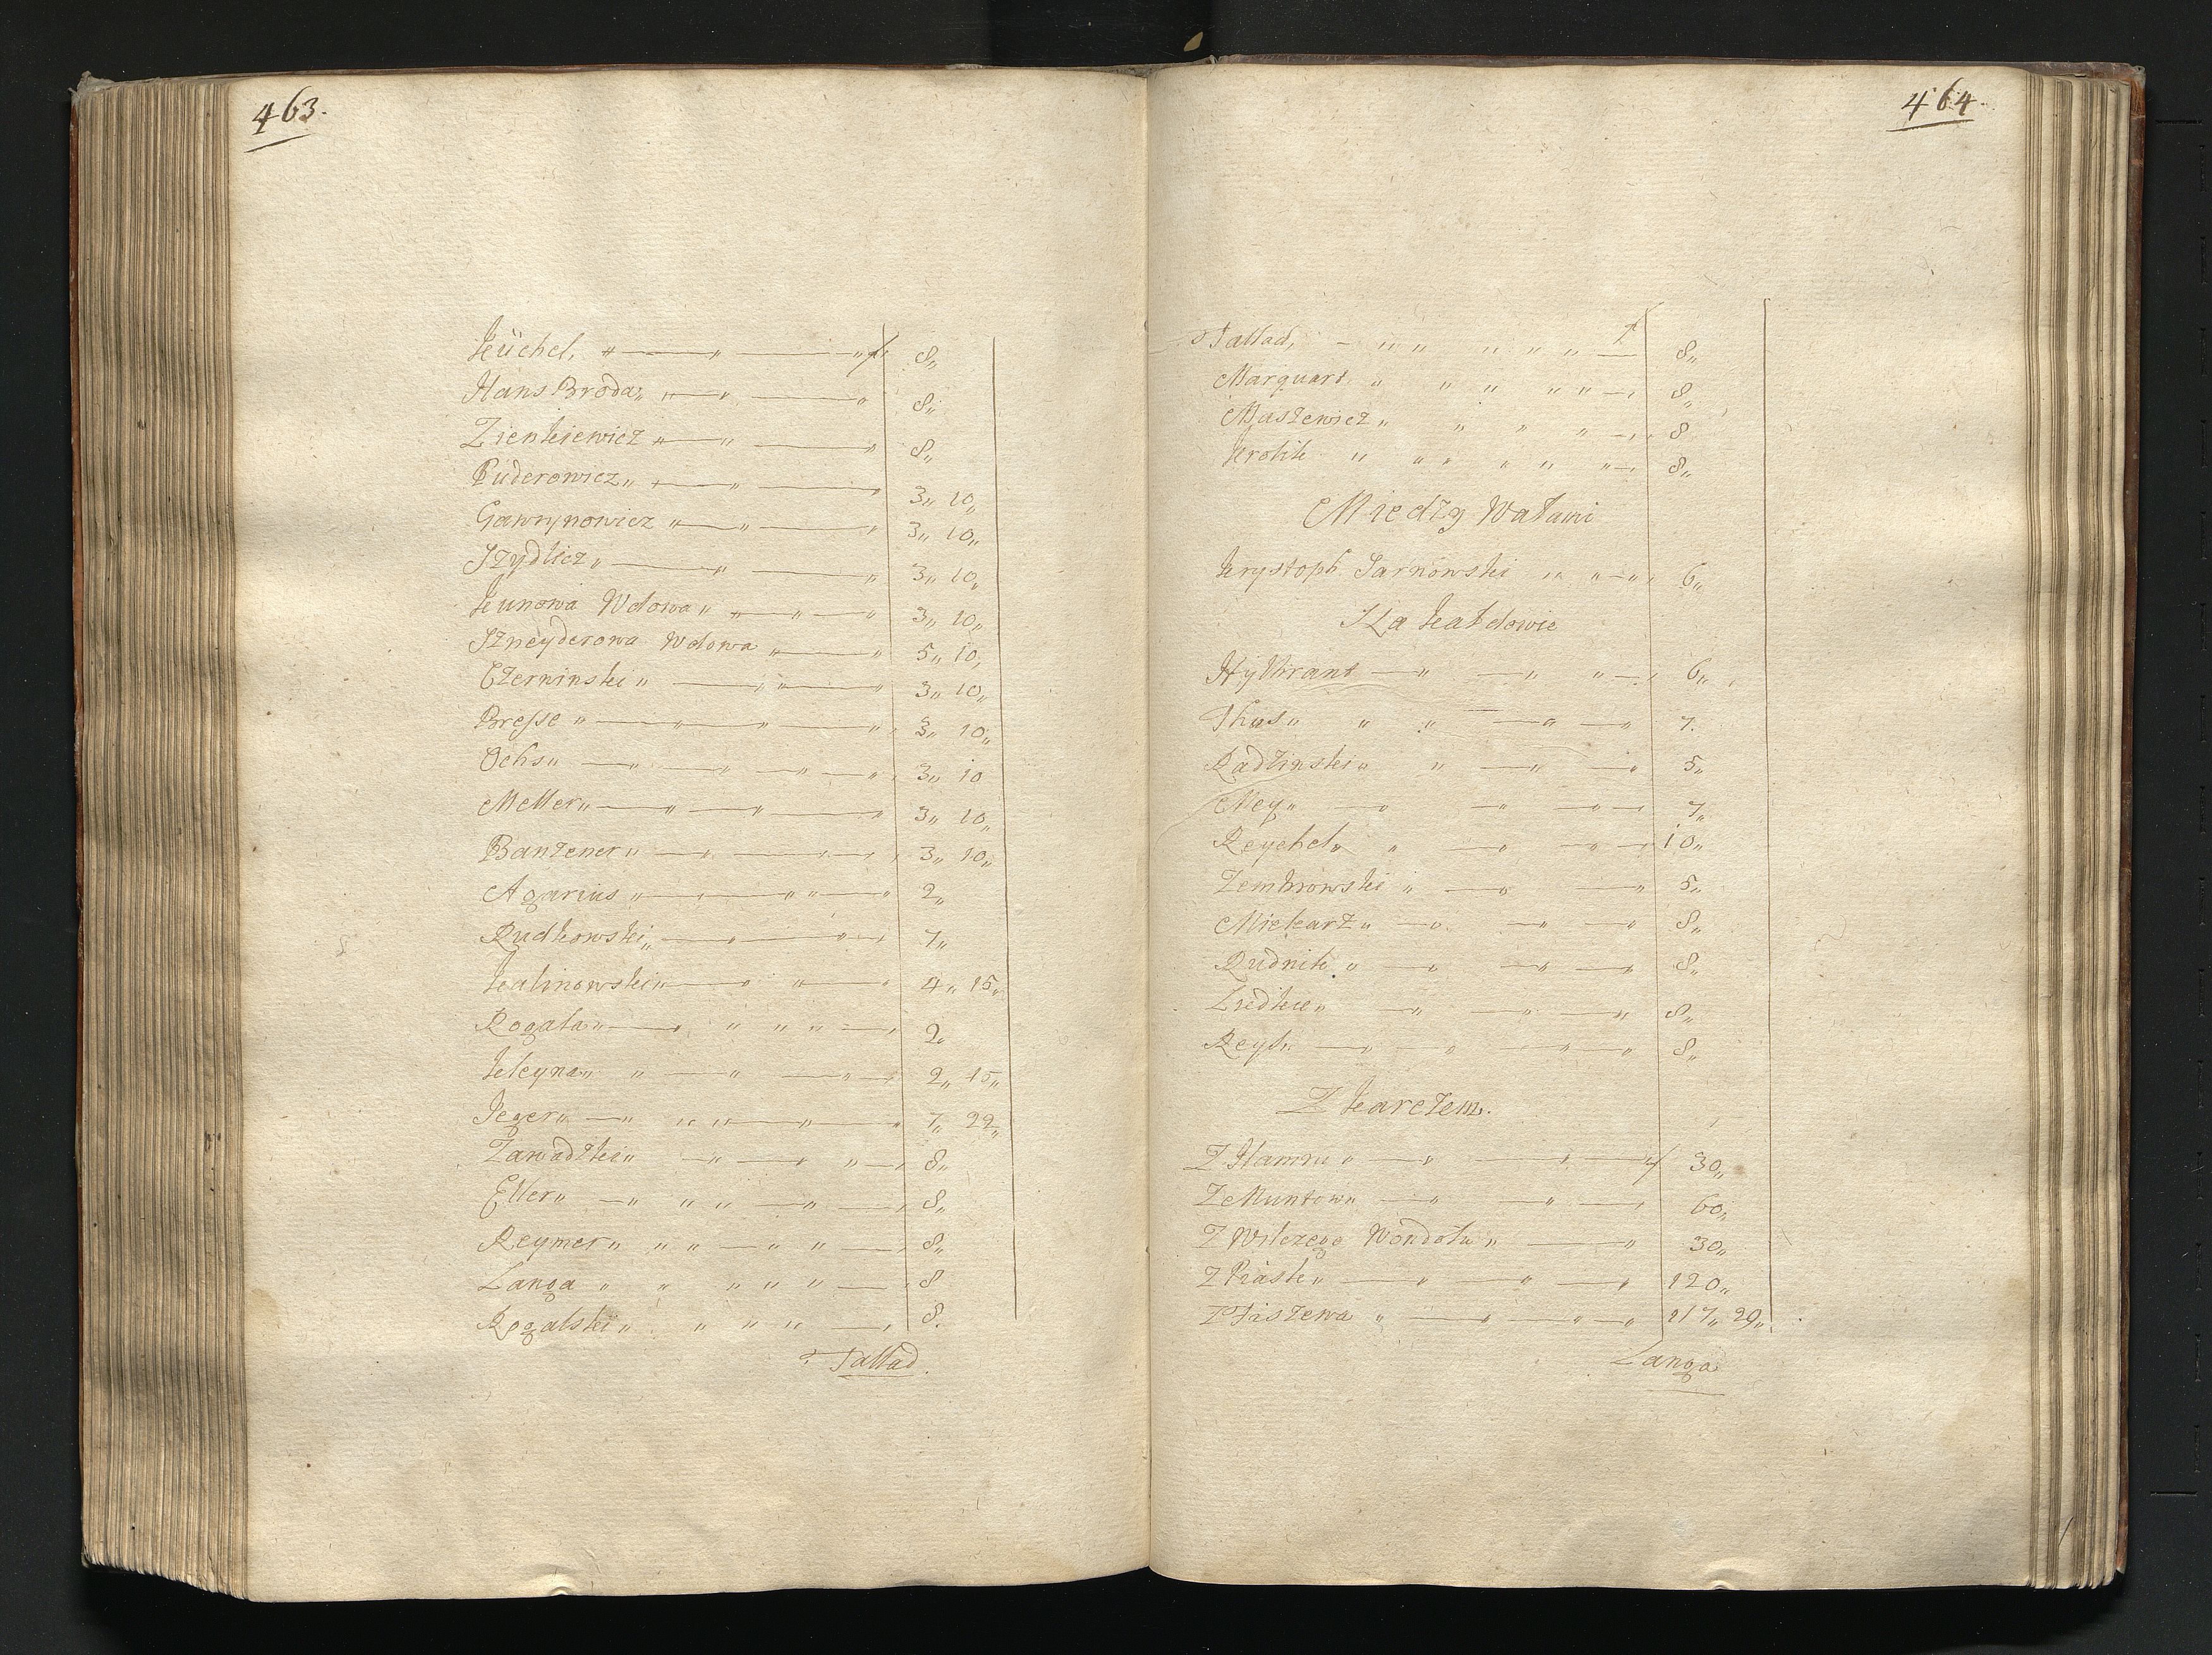 463.
Küchel, f 8
Hans Broda 8
Zienkiewicz 8
Puderowicz 3 10
Gawrynowicz 3 10
Szydlicz 3 10
Kunowa Wdowa 3 10
Szneyderowa Wdowa 5 10
Czerninski 3 10
Bresse 3 10
Ochs 3 10
Meller 3 10
Banzener 3 10
Agarius 2
Rudkowski 7
Kalinowski 4 15
Rogala 2
Kleyna 2 15
Jeger 7 22
Zawadzki 8
Eller 8
Reymer 8
Langa 8
Rogalski 8.
Tallad.
464.
Tallad, f 8
Marquart 8
Muszewicz 8
Krolik 8
Miedzy Wałami
Krystoph Sarnowski 6
Na Kałdowie
Hylbrant 6
Thus 7.
Radzinski 5
Mey 7
Reychel 10
Zembrowski 5
Miekarz 8
Rudnik 8
Lredke 8
Reys 8
Z Karczem.
Z Hamru f 30
Z Muntow 60
Z Wilczego Wondołu 30
Z Piask 120
Z Fiszewa 217 29
Langa